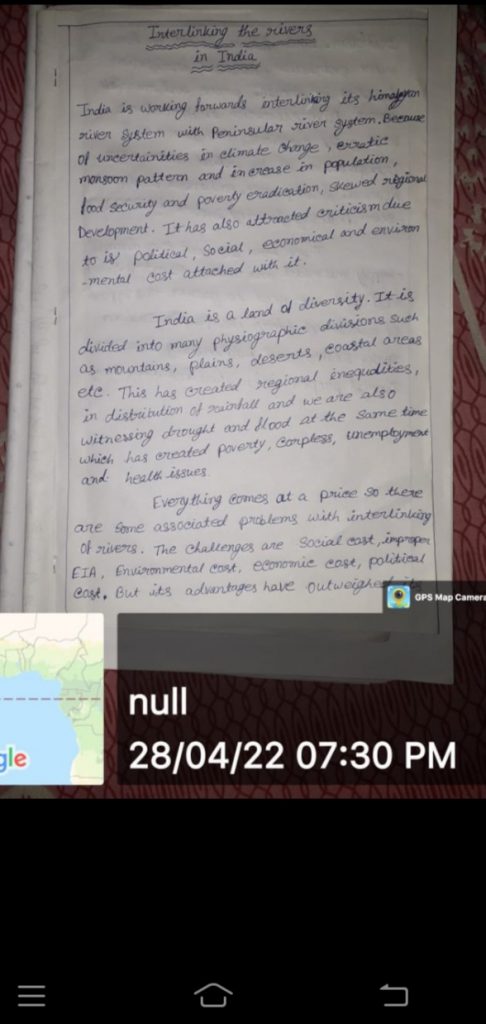 Interlinking the rivers
in India
India is working forwards interlinking its himalayan
river system with Peninsular river system. Because
of uncertainities in climate change, erratic
monsoon pattern and increase in population,
food security and poverty eradication, skewed regional
Development. It has also attracted criticism due
to is political, social, economical and environ
-mental cost attached with it.
India is a land of diversity. It is
divided into many physiographic divisions such
as mountains, plains, deserts, coastal areas
etc. This has created regional inequalities,
in distribution of rainfall and we are also
witnessing drought and flood at the same time
which has created poverty, unemployment
and health issues.
Everything comes at a price so there
are some associated problems with interlinking
of rivers. The challenges are social cost, improper
EIA, Environmental cost, economic cost, political
cost. But its advantages have outweighed
GPS Map Camera
gle
null
28/04/22 07:30 PM